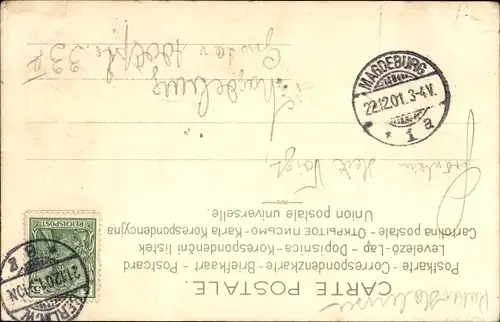 CARTE POSTALE.
Postkarte - Correspondenzkarte - Briefkaart - Postcard
Levelező-Lap - Dopisnica - Korespondenční lístek
Cartolina postale - ОТКРЫТОЕ ПИСЬМО - Karta Korespondencyjna
Union postale universelle.
REICHSPOST
BERLIN, W.
21.12.01
MAGDEBURG
22.12.01. 3-4V.
* 1 a
Fräulein
Voigt
Magdeburg
Gustav Adolfstr. 33